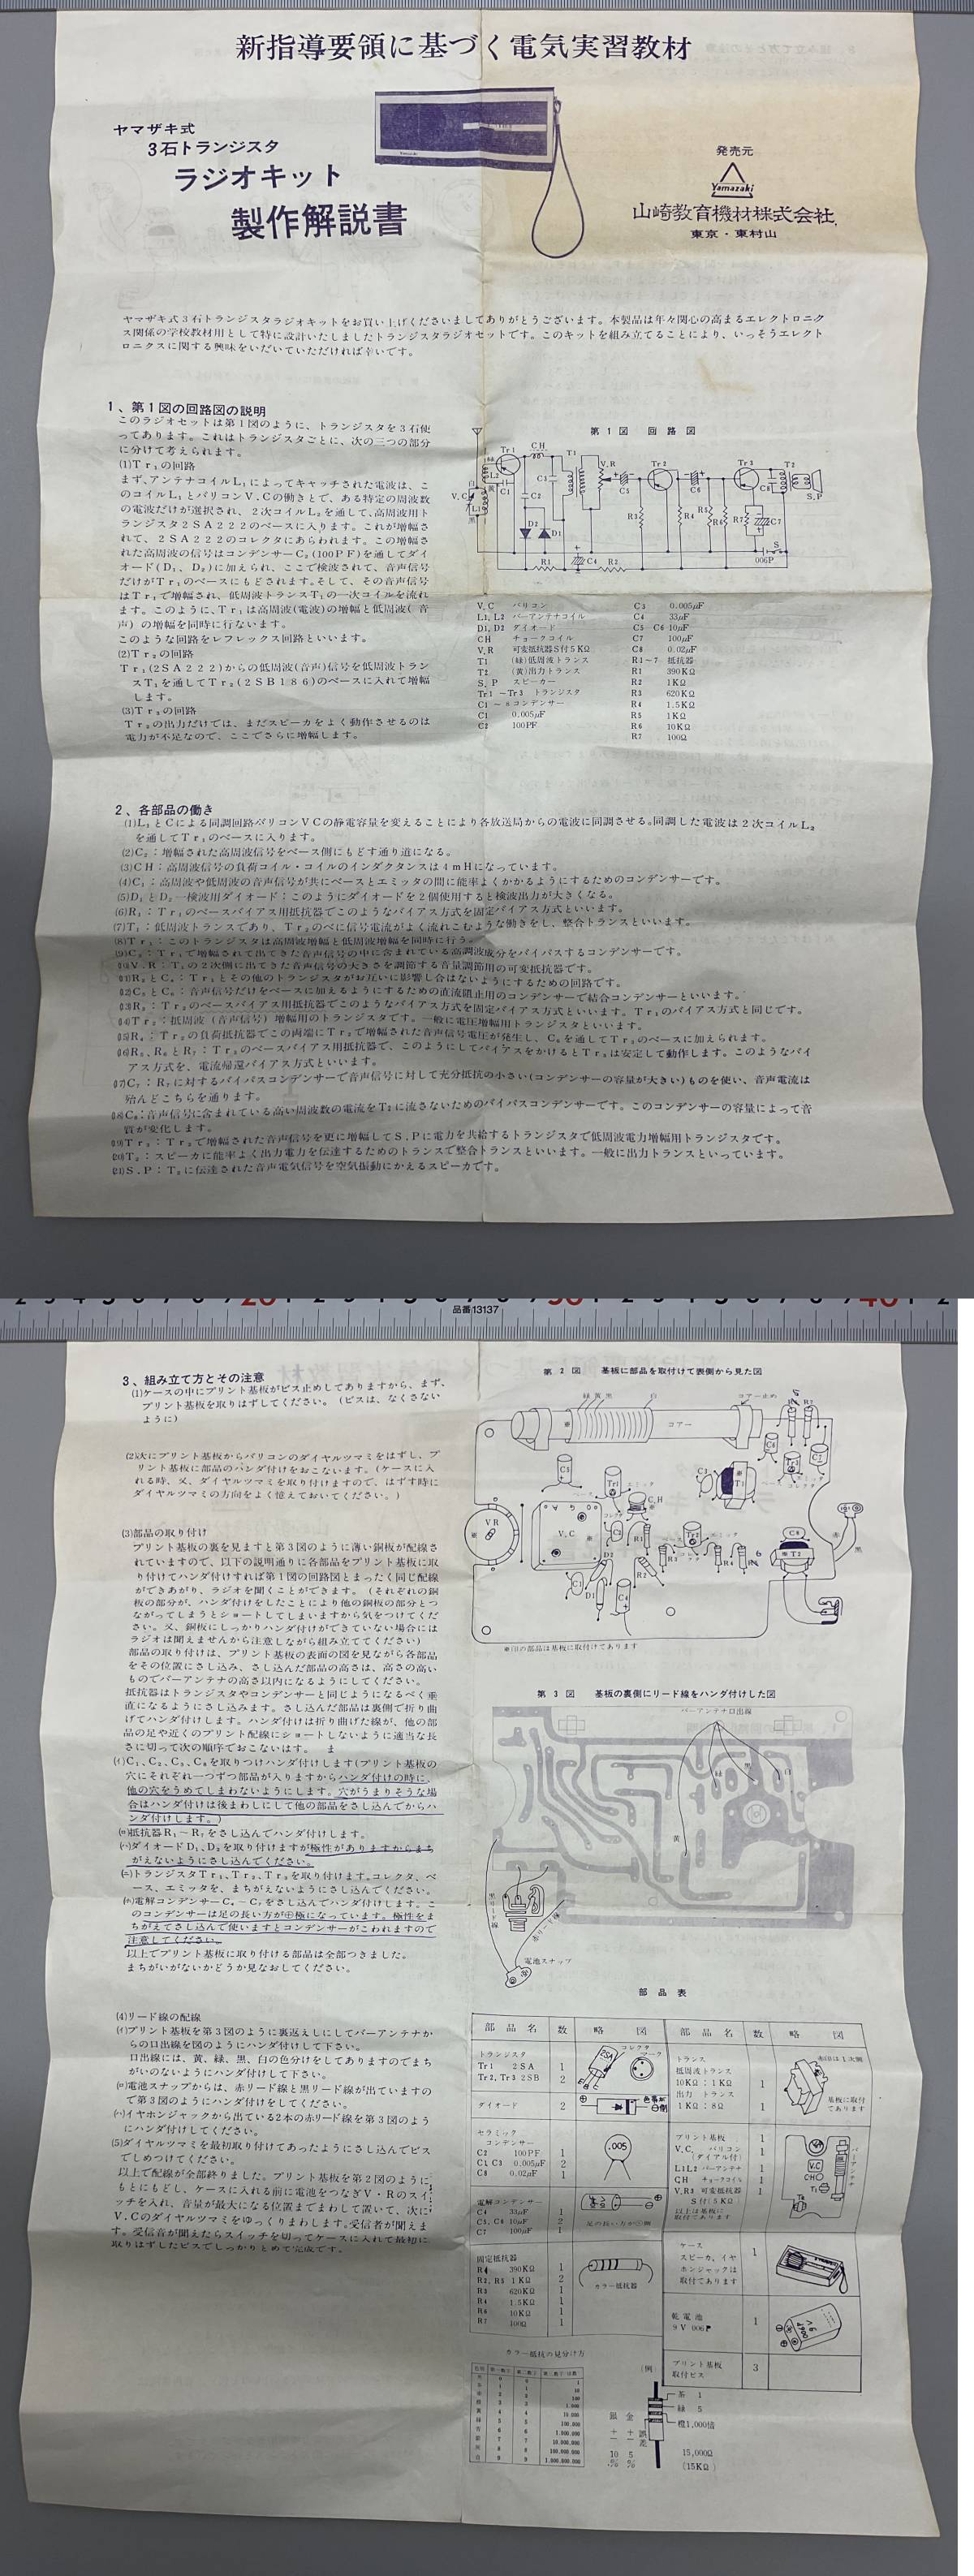 新指導要領に基づく電気実習教材
ヤマザキ式
3石トランジスタ
ラジオキット
製作解説書
発売元
Yamazaki
山崎教育機材株式会社
東京・東村山
ヤマザキ式3石トランジスタラジオキットをお買い上げくださいましてありがとうございます。本製品は年々関心の高まるエレクトロニク
ス関係の学校教材用として特に設計いたしましたトランジスタラジオセットです。このキットを組み立てることにより、いっそうエレクト
ロニクスに関する興味をいだいていただければ幸いです。
1、第1図の回路図の説明
このラジオセットは第1図のように、トランジスタを3石使
ってあります。これはトランジスタごとに、次の三つの部分
に分けて考えられます。
(1)Tr₁の回路
まず、アンテナコイルL₁によってキャッチされた電波は、こ
のコイルL₁とバリコンV.Cの働きとで、ある特定の周波数
の電波だけが選択され、2次コイルL₂を通して、高周波用ト
ランジスタ2SA222のベースに入ります。これが増幅さ
れて、2SA222のコレクタにあらわれます。この増幅さ
れた高周波の信号はコンデンサーC₂(100PF)を通してダイ
オード(D₁、D₂)に加えられ、ここで検波されて、音声信号
だけがTr₁のベースにもどされます。そして、その音声信号
はTr₁で増幅され、低周波トランスT₁の一次コイルを流れ
ます。このように、Tr₁は高周波(電波)の増幅と低周波(音
声)の増幅を同時に行ないます。
このような回路をレフレックス回路といいます。
(2)Tr₂の回路
Tr₁(2SA222)からの低周波(音声)信号を低周波トラン
スT₁を通してTr₂(2SB186)のベースに入れて増幅
します。
(3)Tr₃の回路
Tr₂の出力だけでは、まだスピーカをよく動作させるのは
電力が不足なので、ここでさらに増幅します。
第1図 回路図
Tr1
CH
T1
V.R
Tr2
Tr3
T2
S.P
V.C
L2
L1
C1
C2
C3
D2
D1
C5
R3
R4
C6
R5
R6
R7
C8
C7
S
006P
R1
C4
R2
V,C バリコン
L1, L2 バーアンテナコイル
D1, D2 ダイオード
CH チョークコイル
V,R 可変抵抗器S付5KΩ
T1 (緑)低周波トランス
T2 (黄)出力トランス
S, P スピーカー
Tr1 ~Tr3 トランジスタ
C1 ~ 8コンデンサー
C1 0.005μF
C2 100PF
C3 0.005μF
C4 33μF
C5 C6 10μF
C7 100μF
C8 0.02μF
R1~7 抵抗器
R1 390KΩ
R2 1KΩ
R3 620KΩ
R4 1.5KΩ
R5 1KΩ
R6 10KΩ
R7 100Ω
2、各部品の働き
(1)L₁とCによる同調回路バリコンVCの静電容量を変えることにより各放送局からの電波に同調させる。同調した電波は2次コイルL₂
を通してTr₁のベースに入ります。
(2)C₂:増幅された高周波信号をベース側にもどす通り道になる。
(3)CH:高周波信号の負荷コイル・コイルのインダクタンスは4mHになっています。
(4)C₁:高周波や低周波の音声信号が共にベースとエミッタの間に能率よくかかるようにするためのコンデンサーです。
(5)D₁とD₂―検波用ダイオード:このようにダイオードを2個使用すると検波出力が大きくなる。
(6)R₁:Tr₁のベースバイアス用抵抗器でこのようなバイアス方式を固定バイアス方式といいます。
(7)T₁:低周波トランスであり、Tr₂のベに信号電流がよく流れこむような働きをし、整合トランスといいます。
(8)Tr₁:このトランジスタは高周波増幅と低周波増幅を同時に行う。
(9)C₃:Tr₁で増幅されて出てきた音声信号の中に含まれている高調波成分をバイパスするコンデンサーです。
(10)V.R:T₁の2次側に出てきた音声信号の大きさを調節する音量調節用の可変抵抗器です。
(11)R₂とC₄:Tr₁とその他のトランジスタがお互いに影響し合はないようにするための回路です。
(12)C₅とC₆:音声信号だけをベースに加えるようにするための直流阻止用のコンデンサーで結合コンデンサーといいます。
(13)R₃:Tr₂のベースバイアス用抵抗器でこのようなバイアス方式を固定バイアス方式といいます。Tr₁のバイアス方式と同じです。
(14)Tr₂:抵周波(音声信号)増幅用のトランジスタです。一般に電圧増幅用トランジスタといいます。
(15)R₄:Tr₂の負荷抵抗器でこの両端にTr₂で増幅された音声信号電圧が発生し、C₆を通してTr₃のベースに加えられます。
(16)R₅、R₆とR₇:Tr₃のベースバイアス用抵抗器で、このようにしてバイアスをかけるとTr₃は安定して動作します。このようなバイ
アス方式を、電流帰還バイアス方式といいます。
(17)C₇:R₇に対するバイパスコンデンサーで音声信号に対して充分抵抗の小さい(コンデンサーの容量が大きい)ものを使い、音声電流は
殆んどこちらを通ります。
(18)C₈:音声信号に含まれている高い周波数の電流をT₂に流さないためのバイパスコンデンサーです。このコンデンサーの容量によって音
質が変化します。
(19)Tr₃:Tr₂で増幅された音声信号を更に増幅してS.Pに電力を共給するトランジスタで低周波電力増幅用トランジスタです。
(20)T₂:スピーカに能率よく出力電力を伝達するためのトランスで整合トランスといいます。一般に出力トランスといっています。
(21)S.P:T₂に伝達された音声電気信号を空気振動にかえるスピーカです。
品番13137
3、組み立て方とその注意
(1)ケースの中にプリント基板がビス止めしてありますから、まず、
プリント基板を取りはずしてください。(ビスは、なくさない
ように)
(2)次にプリント基板からバリコンのダイヤルツマミをはずし、プ
リント基板に部品のハンダ付けをおこないます。(ケースに入
れる時、又、ダイヤルツマミを取り付けますので、はずす時に
ダイヤルツマミの方向をよく憶えておいてください。)
(3)部品の取り付け
プリント基板の裏を見ますと第3図のように薄い銅板が配線さ
れていますので、以下の説明通りに各部品をプリント基板に取
り付けてハンダ付けすれば第1図の回路図とまったく同じ配線
ができあがり、ラジオを聞くことができます。(それぞれの銅
板の部分が、ハンダ付けをしたことにより他の銅板の部分とつ
ながってしまうとショートしてしまいますから気をつけてくだ
さい。又、銅板にしっかりハンダ付けができていない場合には
ラジオは聞えませんから注意しながら組み立ててください)
部品の取り付けは、プリント基板の表面の図を見ながら各部品
をその位置にさし込み、さし込んだ部品の高さは、高さの高い
ものでバーアンテナの高さ以内になるようにしてください。
抵抗器はトランジスタやコンデンサーと同じようになるべく垂
直になるようにさし込みます。さし込んだ部品は裏側で折り曲
げてハンダ付けします。ハンダ付けは折り曲げた線が、他の部
品の足や近くのプリント配線にショートしないように適当な長
さに切って次の順序でおこないます。
(イ)C₁、C₂、C₃、C₈を取りつけハンダ付けします(プリント基板の
穴にそれぞれ一つずつ部品が入りますからハンダ付けの時に、
他の穴をうめてしまわないようにします。穴がうまりそうな場
合はハンダ付けは後まわしにして他の部品をさし込んでからハ
ンダ付けします。)
(ロ)抵抗器R₁~R₇をさし込んでハンダ付けします。
(ハ)ダイオードD₁、D₂を取り付けますが極性がありますからまち
がえないようにさし込んでください。
(ニ)トランジスタTr₁、Tr₂、Tr₃を取り付けます。コレクタ、ベ
ース、エミッタを、まちがえないようにさし込んでください。
(ホ)電解コンデンサーC₄~C₇をさし込んでハンダ付けします。こ
のコンデンサーは足の長い方が⊕極になっています。極性をま
ちがえてさし込んで使いますとコンデンサーがこわれますので
注意してください。
以上でプリント基板に取り付ける部品は全部つきました。
まちがいがないかどうか見なおしてください。
(4)リード線の配線
(イ)プリント基板を第3図のように裏返えしにしてバーアンテナか
らの口出線を図のようにハンダ付けして下さい。
口出線には、黄、緑、黒、白の色分けをしてありますのでまち
がいのないようにハンダ付けして下さい。
(ロ)電池スナップからは、赤リード線と黒リード線が出ていますの
で第3図のようにハンダ付けをしてください。
(ハ)イヤホンジャックから出ている2本の赤リード線を第3図のよう
にハンダ付けしてください。
(5)ダイヤルツマミを最初取り付けてあったようにさし込んでビス
でしめつけてください。
以上で配線が全部終りました。プリント基板を第2図のように
もとにもどし、ケースに入れる前に電池をつなぎV・Rのスイ
ッチを入れ、音量が最大になる位置までまわして置いて、次に
V.Cのダイヤルツマミをゆっくりまわします。受信音が聞えま
す。受信音が聞えたらスイッチを切ってケースに入れて最初に
取りはずしたビスでしっかりとめて完成です。
第2図 基板に部品を取付けて表側から見た図
緑 黄 黒 白
コアー止め
コアー
VR
V.C
C5
Tr1
C.H
C3
T1
D2
R1
R2
R3
Tr2
R4
C1
D1
C4
C8
T2
赤
黒
※印の部品は基板に取付けてあります
第3図 基板の裏側にリード線をハンダ付けした図
バーアンテナ口出線
緑
黒
白
黄
黒リード線
電池スナップ
部品表
部品名 数 略図 部品名 数 略図
トランジスタ
Tr1 2SA 1
Tr2, Tr3 2SB 2
コレクタ
マーク
ダイオード 2
セラミック
コンデンサー
C2 100PF 1
C1, C3 0.005μF 2
C8 0.02μF 1
.005
電解コンデンサー
C4 33μF 1
C5, C6 10μF 2
C7 100μF 1
足の長い方が⊕側
固定抵抗器
R1 390KΩ 1
R2, R5 1KΩ 2
R3 620KΩ 1
R4 1.5KΩ 1
R6 10KΩ 1
R7 100Ω 1
カラー抵抗器
トランス
抵周波トランス
10KΩ:1KΩ 1
出力 トランス
1KΩ:8Ω 1
赤印は1次側
基板に取付
てあります
プリント基板 1
V.C, バリコン 1
(ダイアル付)
L1L2 バーアンテナ 1
CH チョークコイル 1
V,R3 可変抵抗器 1
S付:5KΩ
以上は基板に
取付てあります
V.C
CH
T1
バーアンテナ
ケース 1
スピーカ、イヤ
ホンジャックは
取付てあります
乾電池
9V 006P 1
プリント基板
取付ビス 3
カラー抵抗の見分け方
黒 0 0 1
茶 1 1 10
赤 2 2 100
橙 3 3 1,000
黄 4 4 10,000
緑 5 5 100,000
青 6 6 1,000,000
紫 7 7 10,000,000
灰 8 8 100,000,000
白 9 9 1,000,000,000
(例)
茶 1
緑 5
橙1,000倍
銀 金
誤差
10% 5%
15,000Ω
(15KΩ)